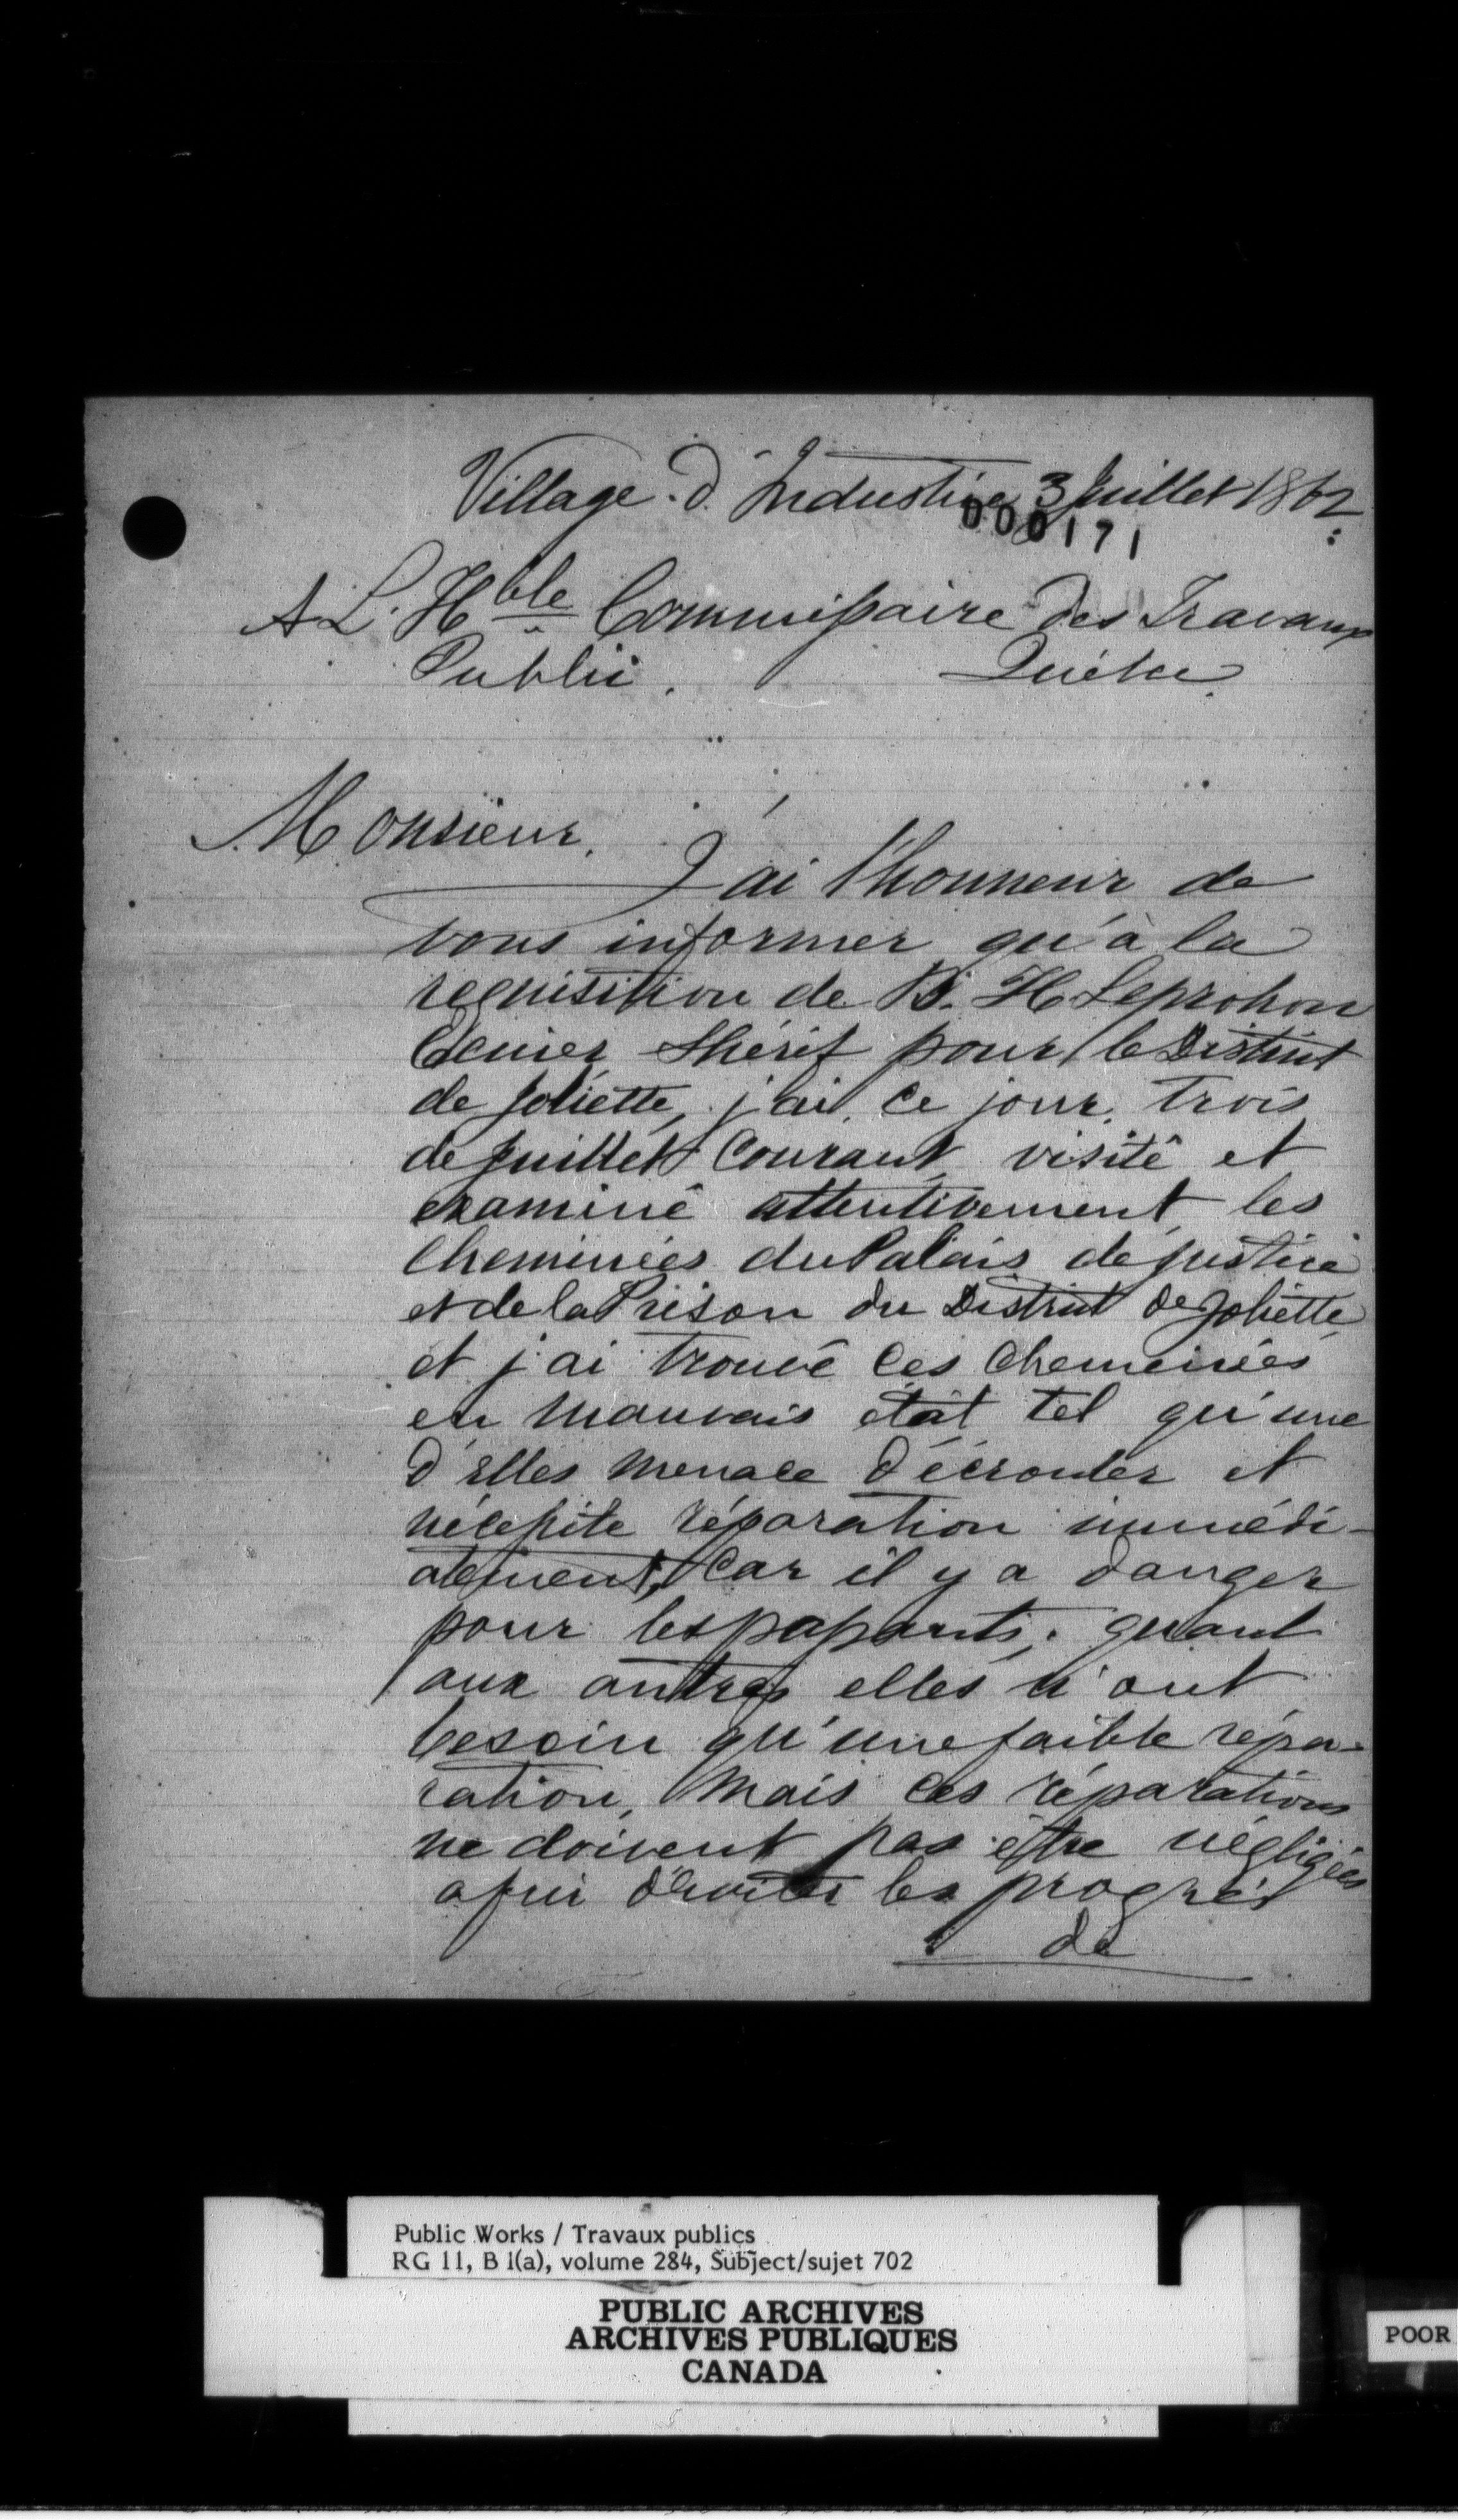 Village d'Industrie 3 Juillet 1862
000171
A L'Hble Commissaire des Travaux
Public. Québec
Monsieur,
J'ai l'honneur de
vous informer qu'à la
requisition de B. H Leprohon
Ecuier Shérif pour le District
de Joliette, j'ai, ce jour, trois
de juillet courant, visité et
examiné attentivement les
cheminées du Palais de justice
et de la Prison du District de Joliette,
et j'ai trouvé ces cheminées
en mauvais état tel qu'une
d'elles menace d'écrouler et
nécessite réparation immédi-
atement, car il y a danger
pour les passants; quant
aux autres elles n'ont
besoin qu'une faible répa-
ration, mais ces réparations
ne doivent pas être négligées
afin d'éviter les progrés
de
Public Works / Travaux publics
RG 11, B 1(a), volume 284, Subject/sujet 702
PUBLIC ARCHIVES
ARCHIVES PUBLIQUES
CANADA
POOR